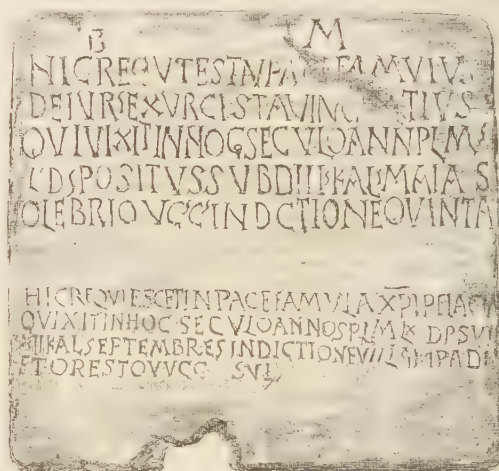 B M
HICREQVTESTNPA FAMVIVS
DEIVRSEXVRCISTAVINC TIVS
QVIVIXITINHOCSECVLOANNPLMV
DSPOSITVSSVBD KAL MAIA S
OLEBRIOVCCINDCTIONEQVINTA
HICREQVIESCETINPACEFAMVLAXPI
QVIXITINHOCSECVLOANNOSPLM DPSV
KALSEPTEMBRESINDICTIONE LAMPADI
ETORESTOVVCC